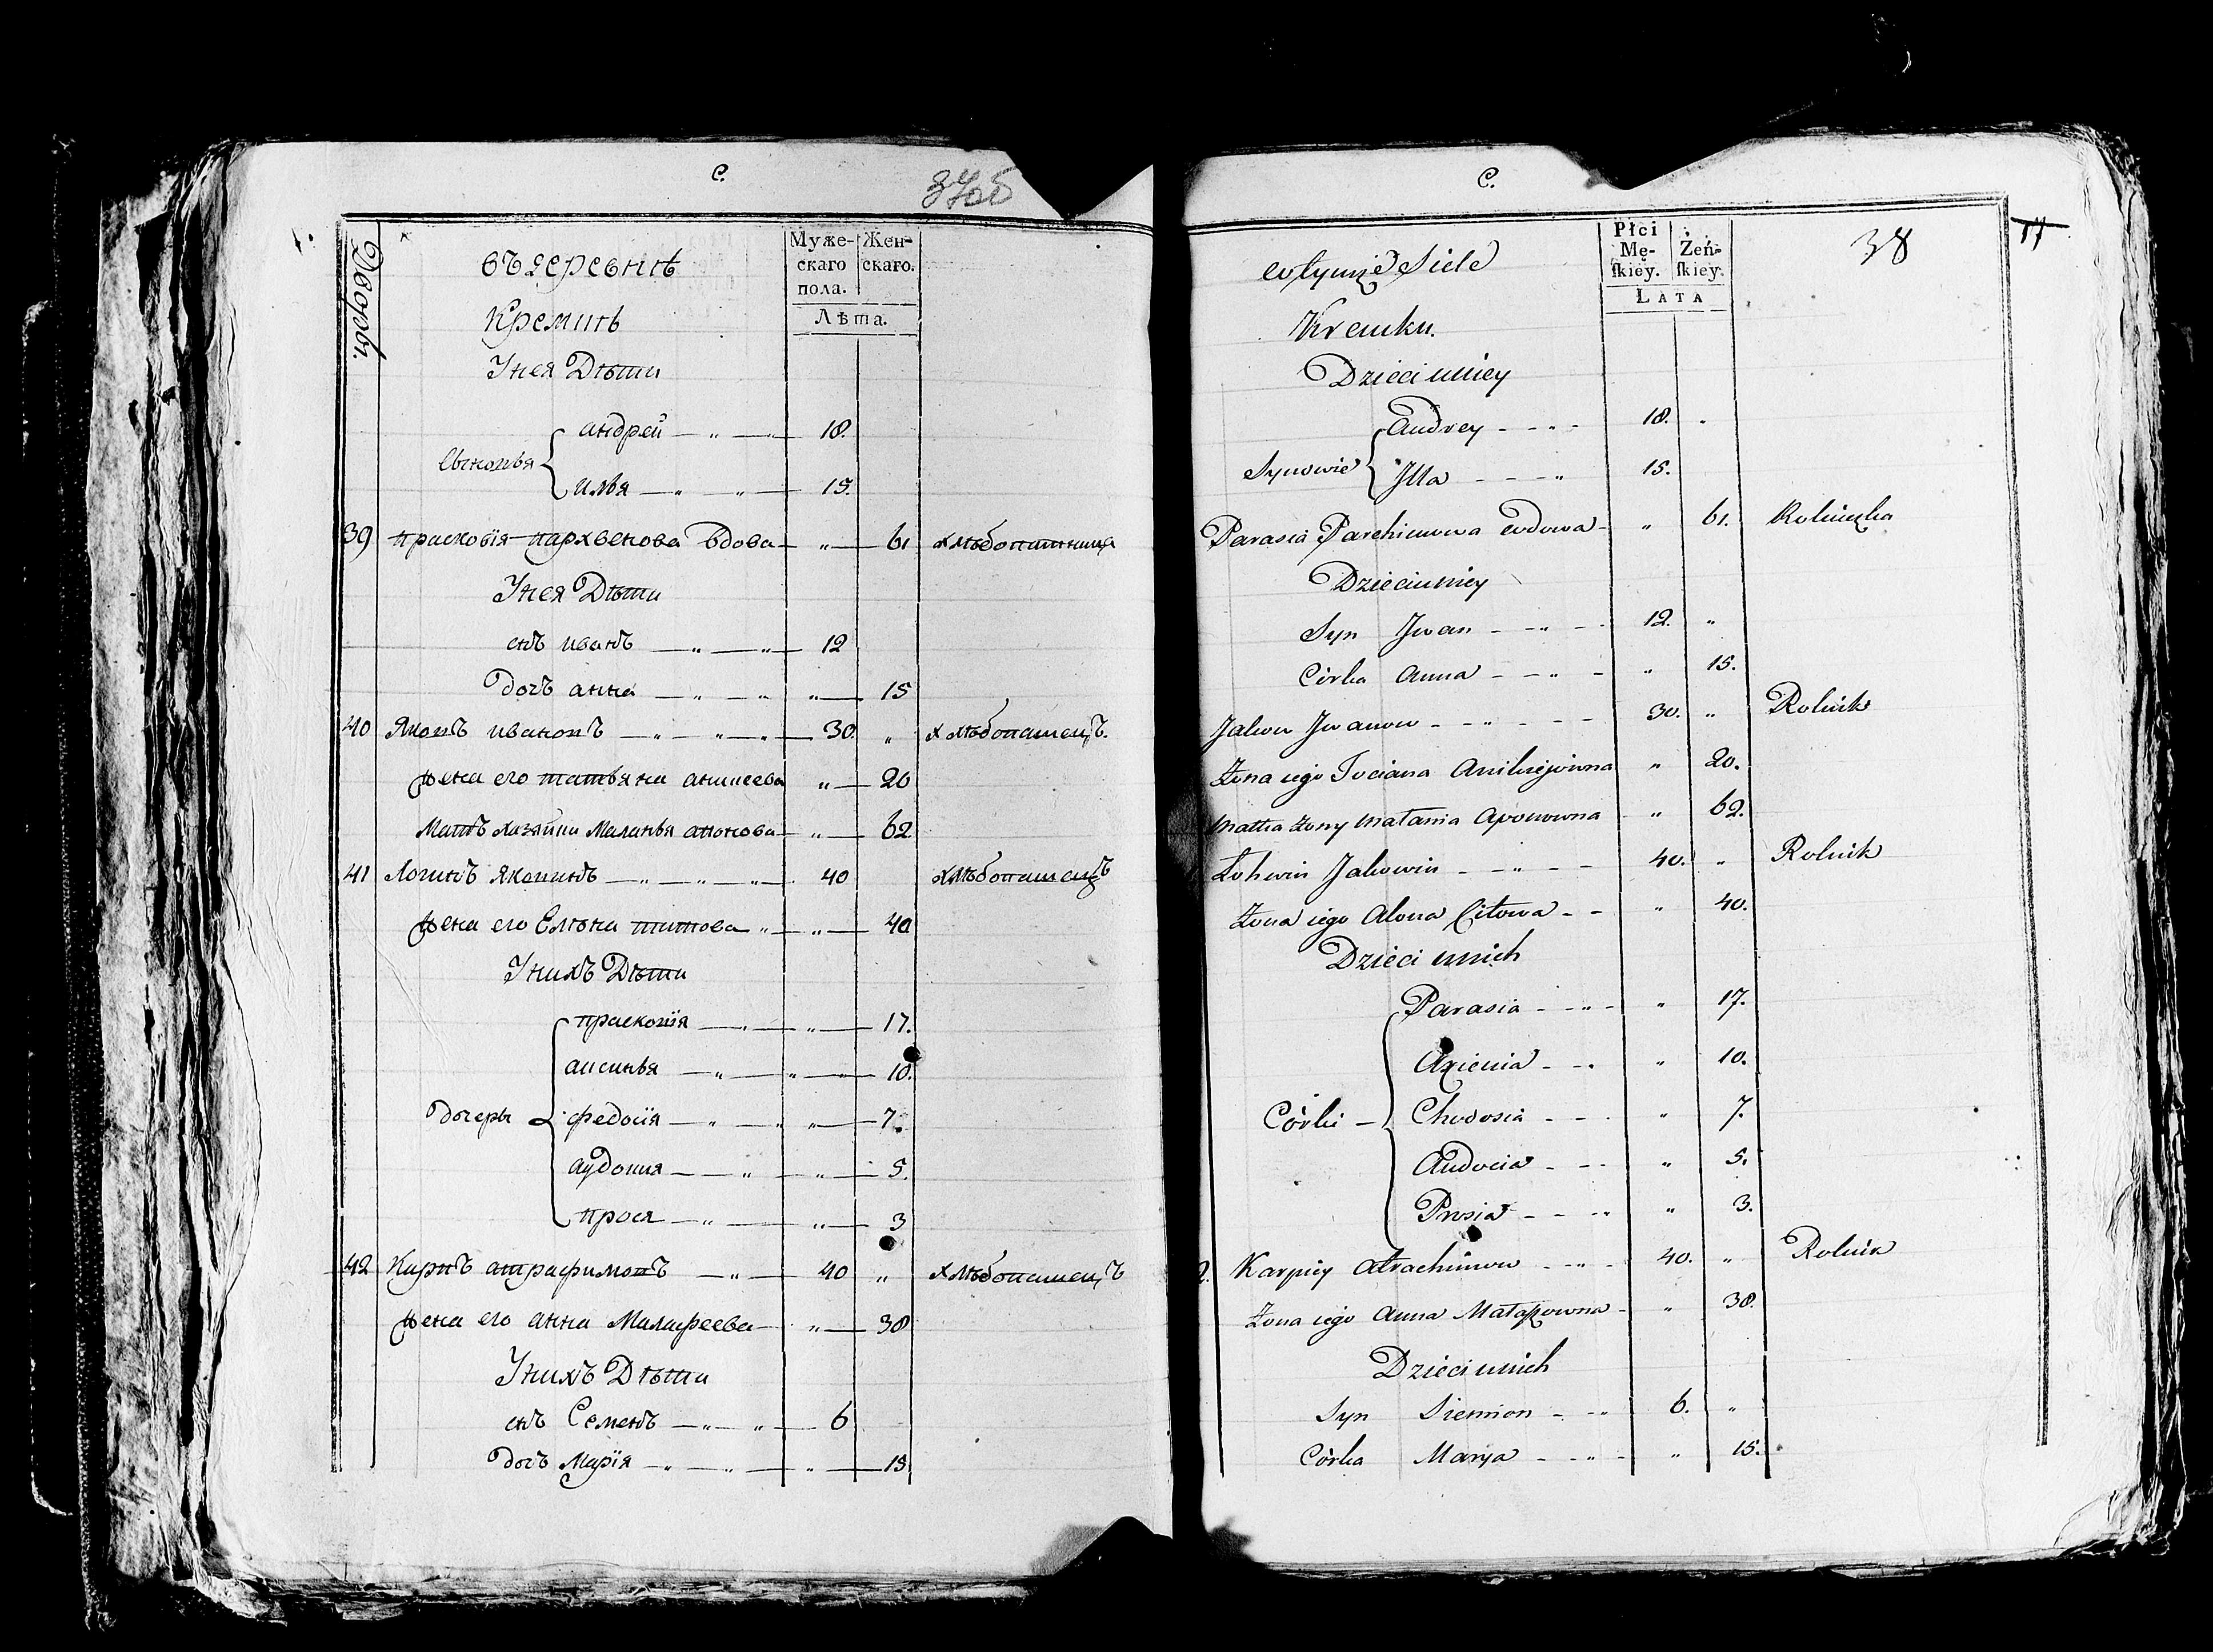 С.
37об
Дворы.
въ деревнѣ
Муже-скаго пола.
Жен-скаго.
Лѣта.
Кремнѣ
У нея Дѣти
Сыновья
андрей — 18.
илья — 15.
39 прасковія пархвенова вдова — " — 61 хлѣбопатница
У нея Дѣти
снъ иванъ — 12
дочъ анна — " — 15
40 Яковъ ивановъ — 30 " хлѣбопашецъ.
жена его татьяна аникеева " — 20
Матъ хазяйки Маланья апонова — " — 62
41 Логинъ яковинъ — 40 хлѣбопашецъ
жена его Елѣна титова " — " — 40
У нихъ Дѣти
дочеры
прасковія — " — 17.
аксинья — " — 10.
федосія — " — 7.
аудокия — " — 5.
прося — " — 3
42 Карпъ атрафимовъ — 40 " хлѣбопашецъ
жена его анна Малафеева — " — 38
У нихъ Дѣти
снъ Семенъ — 6
дочъ Марія — " — 15
С.
38
17
w tymże Siele
Płci Mę-skiey.
Żeń-skiey.
LATA
Kremku.
Dzieci u niey
Synowie
Andrey - - - 18. "
Illa - - - " 15.
Parasia Parchimowa wdowa - " 61. Rolniczka
Dzieci u niey
Syn Jwan - - " - 12. "
Córka Anna - - " - " 15.
Jakow Jwanow - - " - - - 30. " Rolnik
Żona iego Taciana Anikiejowna " 20.
Matka żony Małania Aponowna " 62.
Łohwin Jakowin - - " - - 40. " Rolnik
Żona iego Alona Citowa - - " 40.
Dzieci u nich
Córki
Parasia - - " - " 17.
Axienia - - . " 10.
Chodosia - - . " 7.
Audocia - - . " 5.
Prosia - - " " 3.
Karpiey Atrachimow - - " - 40. " Rolnik
Żona iego Anna Małapowna - " 38.
Dzieci u nich
Syn Siemion - - " 6. "
Córka Marya - - " - " 15.